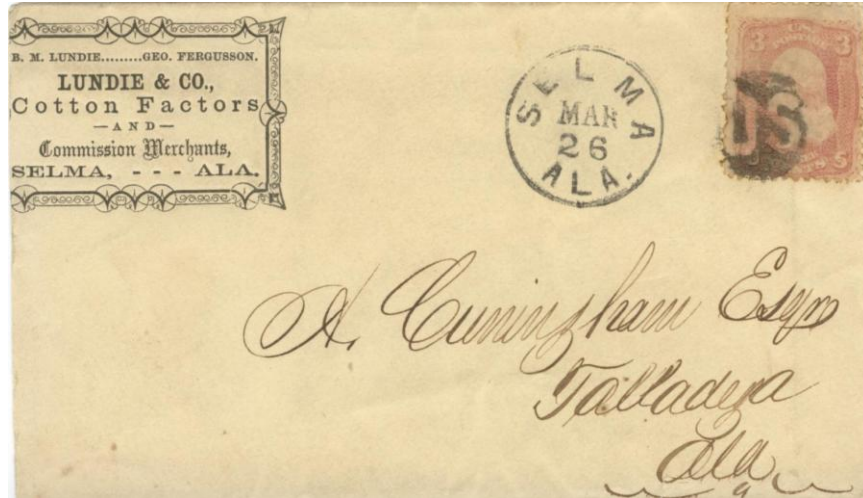 B. M. LUNDIE.........GEO. FERGUSSON.
LUNDIE & CO.,
Cotton Factors
—AND—
Commission Merchants,
SELMA, - - - ALA.
SELMA
MAR
26
ALA.
3 U.S. 3
POSTAGE
US
A. Cuningham Esqr
Talladega
Ala